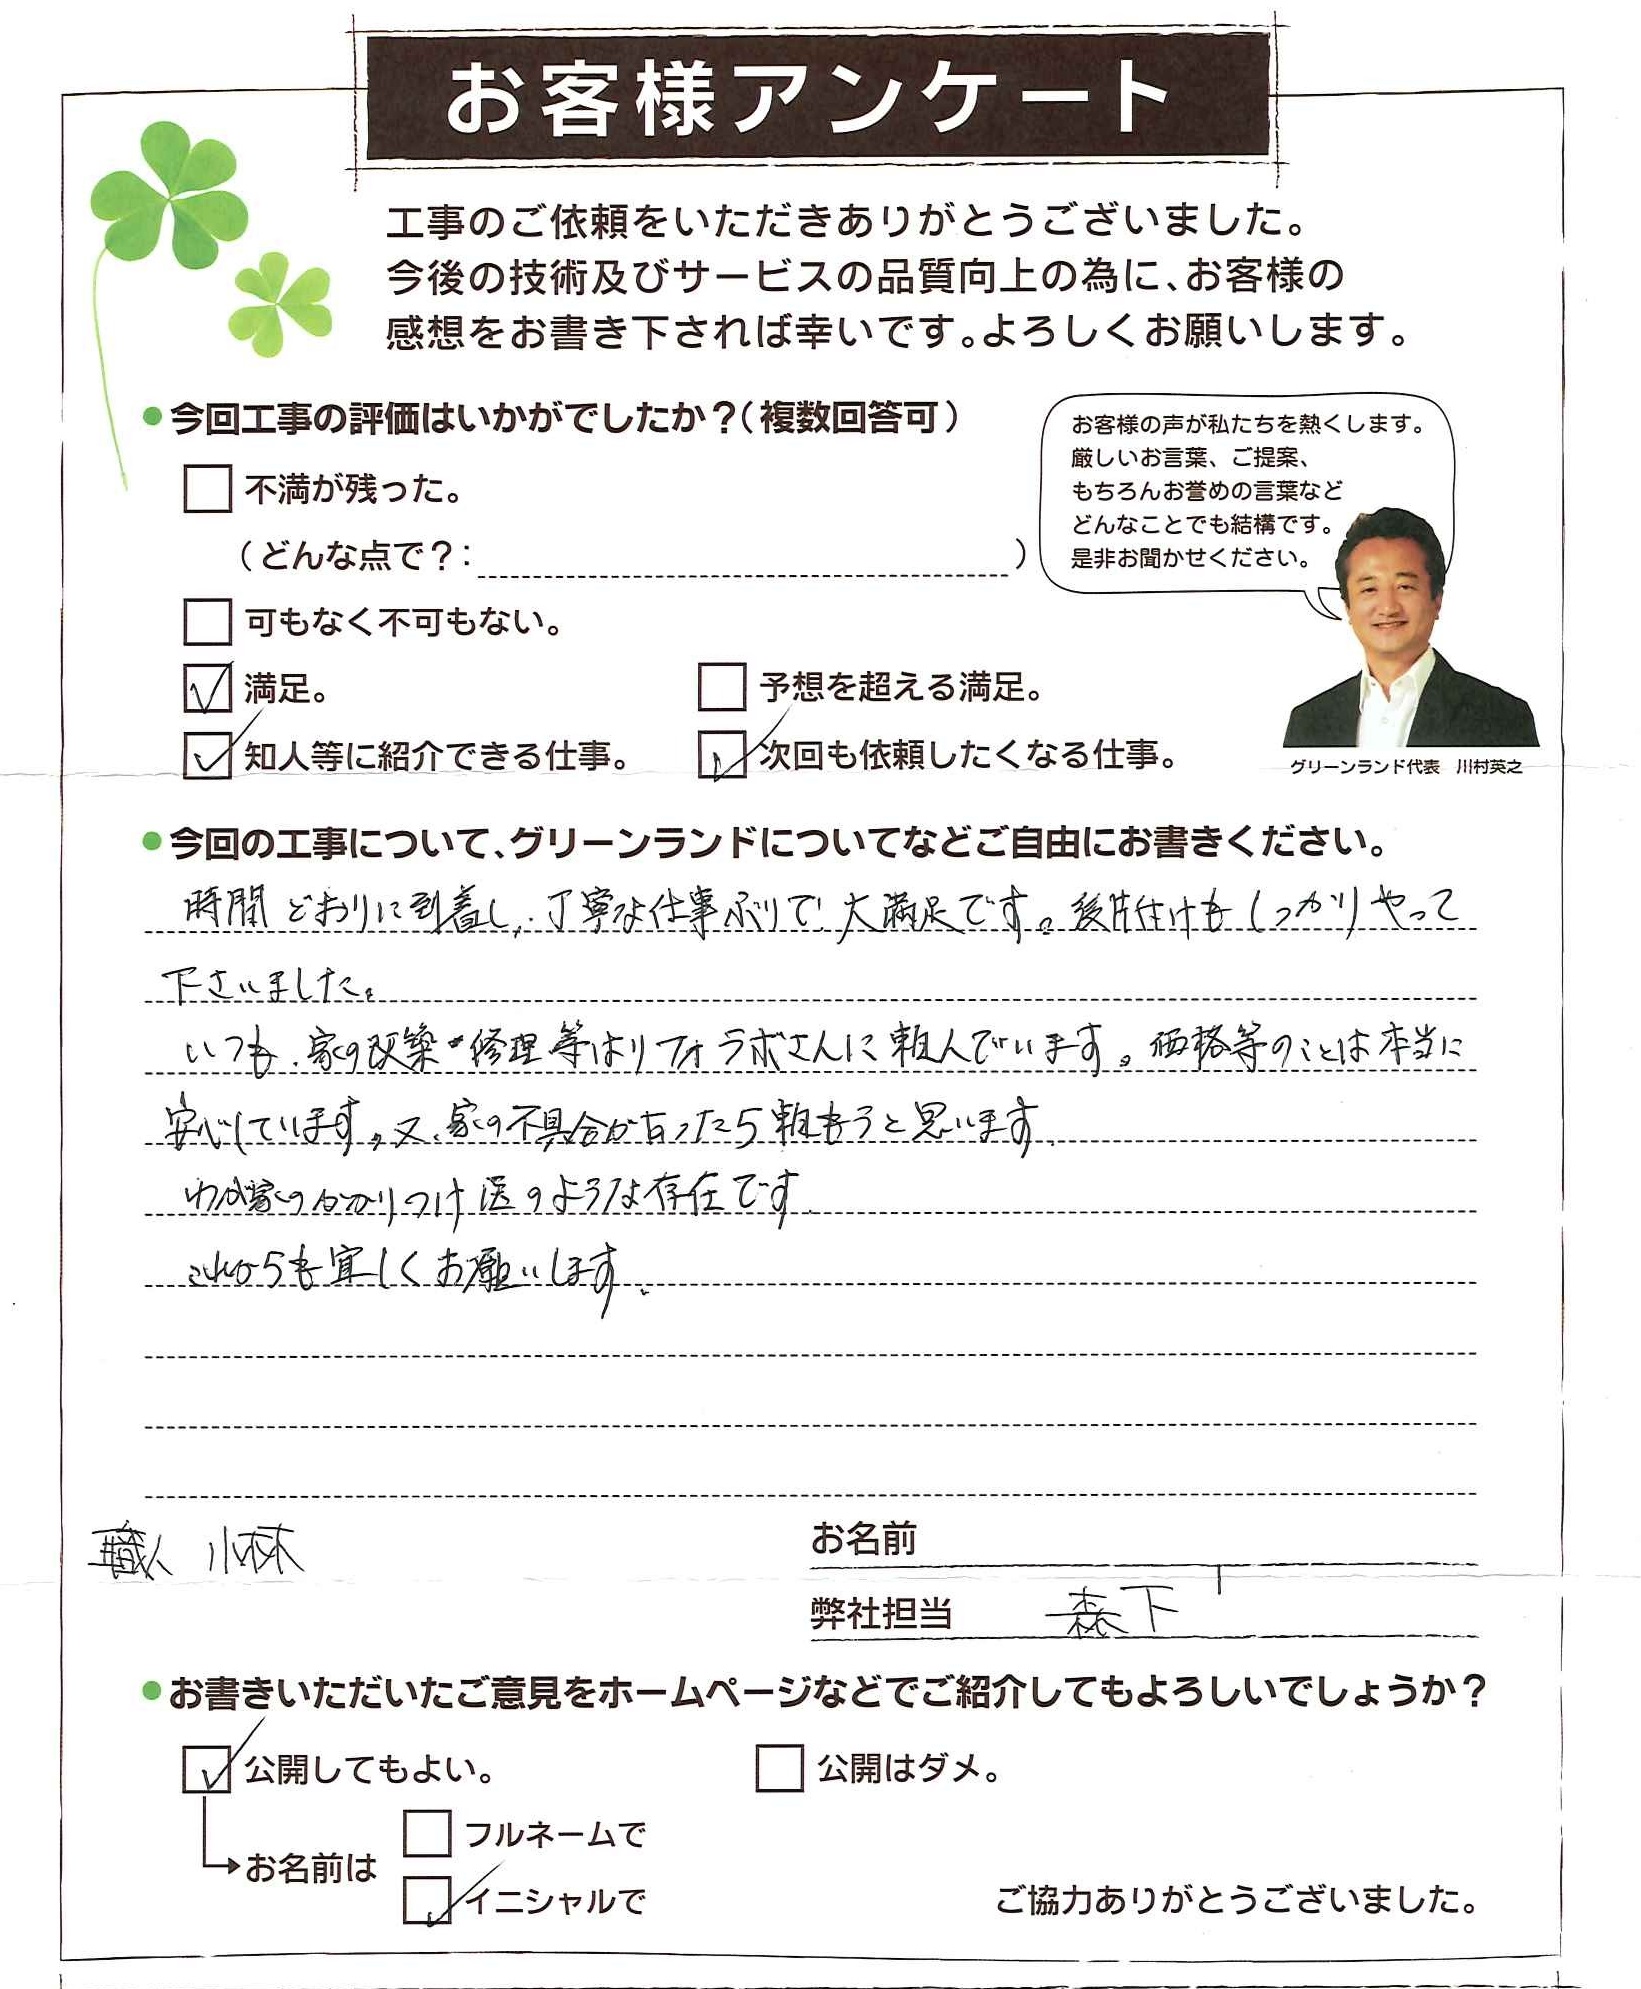 お客様アンケート
工事のご依頼をいただきありがとうございました。
今後の技術及びサービスの品質向上の為に、お客様の
感想をお書き下されば幸いです。よろしくお願いします。
●今回工事の評価はいかがでしたか？(複数回答可)
不満が残った。
(どんな点で？: )
可もなく不可もない。
満足。
予想を超える満足。
知人等に紹介できる仕事。
次回も依頼したくなる仕事。
お客様の声が私たちを熱くします。
厳しいお言葉、ご提案、
もちろんお誉めの言葉など
どんなことでも結構です。
是非お聞かせください。
グリーンランド代表 川村英之
●今回の工事について、グリーンランドについてなどご自由にお書きください。
時間どおりに到着し、丁寧な仕事ぶりで大満足です。後片付けもしっかりやって
下さいました。
いつも、家の改築・修理等はリフォラボさんに頼んでいます。価格等のことは本当に
安心しています。又、家の不具合が有ったら頼もうと思います。
わが家のかかりつけ医のような存在です。
これからも宜しくお願いします。
職人 小林
お名前
弊社担当 森下
●お書きいただいたご意見をホームページなどでご紹介してもよろしいでしょうか？
公開してもよい。
公開はダメ。
お名前は
フルネームで
イニシャルで
ご協力ありがとうございました。